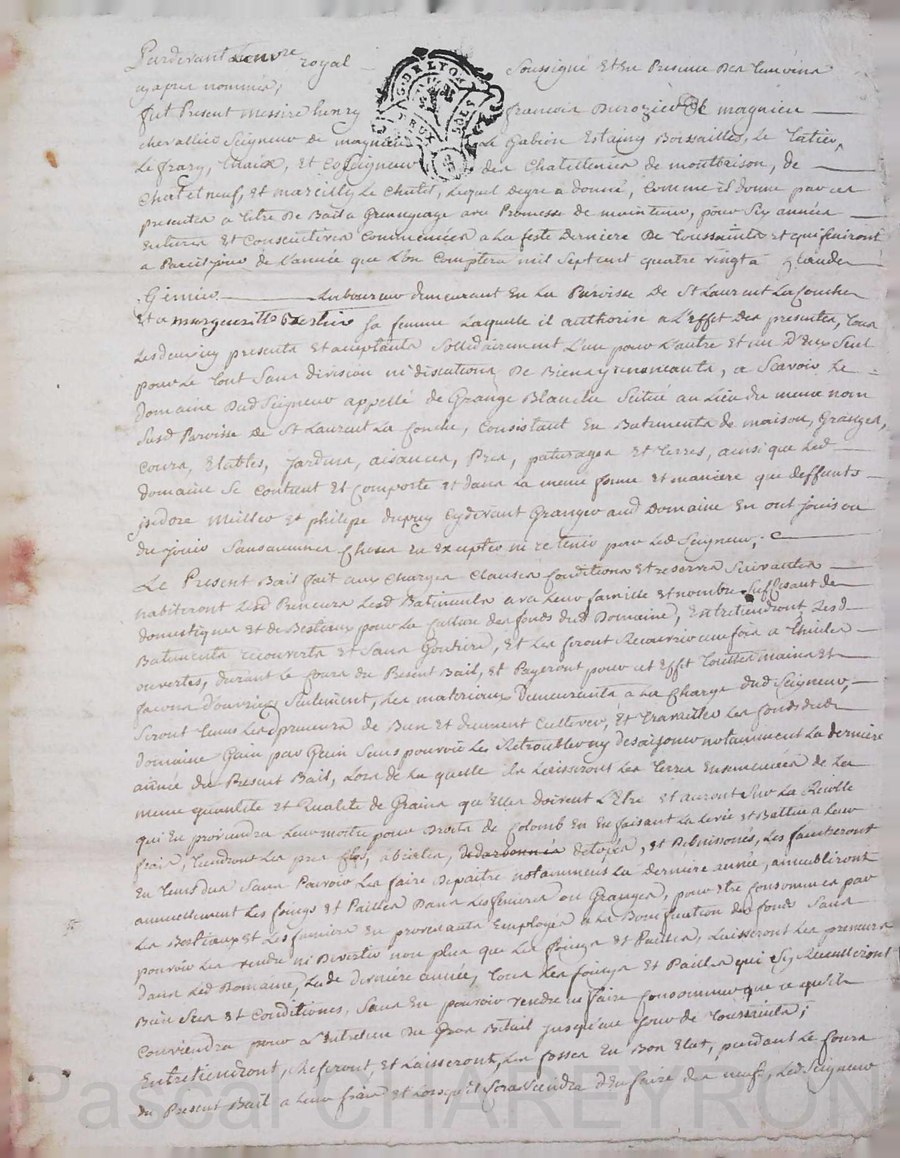 Pardevant Lenore royal Soussigné Et En Presence Des temoins
cy apres nommés,
fut Present messire henry francois Du rozier De magnieu
chevallier Seigneur de magnieu Le Gabion Estaing Boissailles, Le Tatier,
Le frazy, thaix, Et Coseigneur des Chatelenies de montbrison, de
Chatelneuf, et marcilly Le Chatel, Lequel degre a donné, Comme il donne par ces
presentes a titre De Bail a Grangeage avec Promesse de maintenir, pour Six années
Entieres Et Consecutives Commencées a La feste derniere De toussaints et qui finiront
a Pareil jour de L'année que L'on Comptera mil Sept cent quatre vingt à Claude
Laboureur demeurant En La Paroisse De St Laurent La Conche
Et a margueritte sa femme Laquelle il authorise a L'Effet Des presentes, tous
Lesdeux icy presents Et acceptants Sollidairement L'un pour L'autre Et un D'Eux Seul
pour Le tout Sans division ni discution De Biens y renonceants, a Scavoir Le
Domaine Dud Seigneur appellé de Grange Blanche Scitué au Lieu du meme nom
Susd Paroisse De St Laurent La Conche, Consistant En Batiments de maison, Granges,
Cours, Etables, Jardins, aisances, Prés, paturages et terres, ainsi que Led
domaine Se Contient Et Comporte et dans La meme forme et maniere que deffunts
isidore Meiller Et philipe dupuy Cydevant Granger aud Domaine En ont joui ou
du jouir Sans aucunes choses En Excepter ni retenir par Led Seigneur;
Le Present Bail fait aux Charges Clauses Conditions Et reserves Suivantes
habiteront Lesd Preneurs Lesd Batiments avec Leur famille et nombre Suffisant de
domestiques et de Bestiaux pour La Culture des fonds dud Domaine, Entretiendront Lesd
Batiments recouverts et Sans Goutiere, Et Les feront Recouvrir une fois a thuiles
ouvertes, durant Le Cours du Present Bail, et Payeront pour cet Effet touttes mains et
facons d'ouvriers Seulement, Les materiaux Demeurants a La Charge dud Seigneur,
Seront tenus Lesd preneurs de Bien Et duement Cultiver, Et travailler Les fonds dud
domaine Gain par Gain Sans pouvoir Les Retroubler ny desaisonner notamment La derniere
année du Present Bail, Lors de La quelle ils Laisseront Les terres Ensemencées de La
meme quantité et qualité de Grains qu'Elles doivent L'Etre et auront Sur La Recolte
qui En proviendra Leur moitié pour Droits de Colomb En En faisant La Levée et Battue a Leur
frais, tiendront Les prés Clos, abeviés, detopés, et Debuisonés, Les faucheront
En tems dus Sans Pouvoir Les faire depaitre notamment La derniere année, ameubliront
annuellement Les foings et Pailles Dans Les fenieres ou Granges, pour Etre Consommés par
Les Bestiaux et Les fumiers En provenants Employés a La Bonification des fonds Sans
pouvoir Les vendre ni Divertir non plus que Les foings et Pailles, Laisseront Les preneurs
dans Led Domaine, Lade derniere année, tous Les foings Et Pailles qui Sy Receuilleront
Bien Secs et Conditionés, Sans En pouvoir vendre ni faire Consommer que ce qu'il
Conviendra pour L'Entretien du Gros Betail jusqu'au jour de toussaints;
Entretiendront, referont, Et Laisseront, Les fossés En Bon Etat, pendant Le Cours
du Present Bail a Leur frais et Lorsqu'il Conviendra d'En faire des neufs, Led Seigneur
G. DE LYON
DEUX SOLS
Pascal CHAREYRON